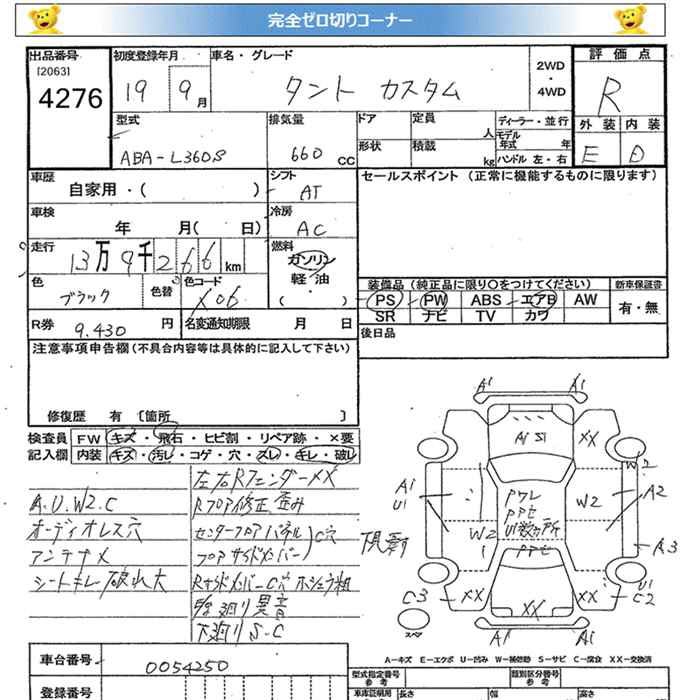 完全ゼロ切りコーナー
出品番号
[2063]
4276
初度登録年月
19 9月
車名・グレード
タント カスタム
2WD
・
4WD
評価点
R
外装 内装
E D
型式
ABA-L360S
排気量
660 CC
ドア
形状
定員
人
積載
kg
ディーラー・並行
モデル年式 年
ハンドル 左・右
車歴
自家用・( )
シフト
AT
セールスポイント (正常に機能するものに限ります)
車検
年 月( 日)
冷房
AC
走行
13万9千266km
燃料
ガソリン
軽油
・
( )
色
ブラック
色替
色コード
X06
装備品 (純正品に限り○をつけてください)
新車保証書
PS PW ABS エアB AW
SR ナビ TV カワ
有・無
R券 9.430 円
名変通知期限 月 日
後日品
注意事項申告欄(不具合内容等は具体的に記入して下さい)
修復歴 有 [箇所 ]
検査員
記入欄
FW キズ・飛石・ヒビ割・リペア跡・×要
内装 キズ・汚レ・コゲ・穴・スレ・キレ・破レ
A.U.W2.C
オーディオレス穴
アンテナメ
シートキレ破れ大
左右Rフェンダー××
Rフロア修正歪み
センターフロアパネル
フロアサイドメンバー
C穴
RサイドメンバーC穴
異音
下廻りS.C
A1 A1
A1 S1
XX
W2
A1
U1
A2
W2
W2
A3
C3
XX XX XX
U1
C2
スペア
A1 A1
A-キズ E-エクボ U-凹み W-補修跡 S-サビ C-腐食 XX-交換済
車台番号
0054250
登録番号
型式指定番号
参考
類別区分番号
参考
車庫証明用
長さ
幅
高さ